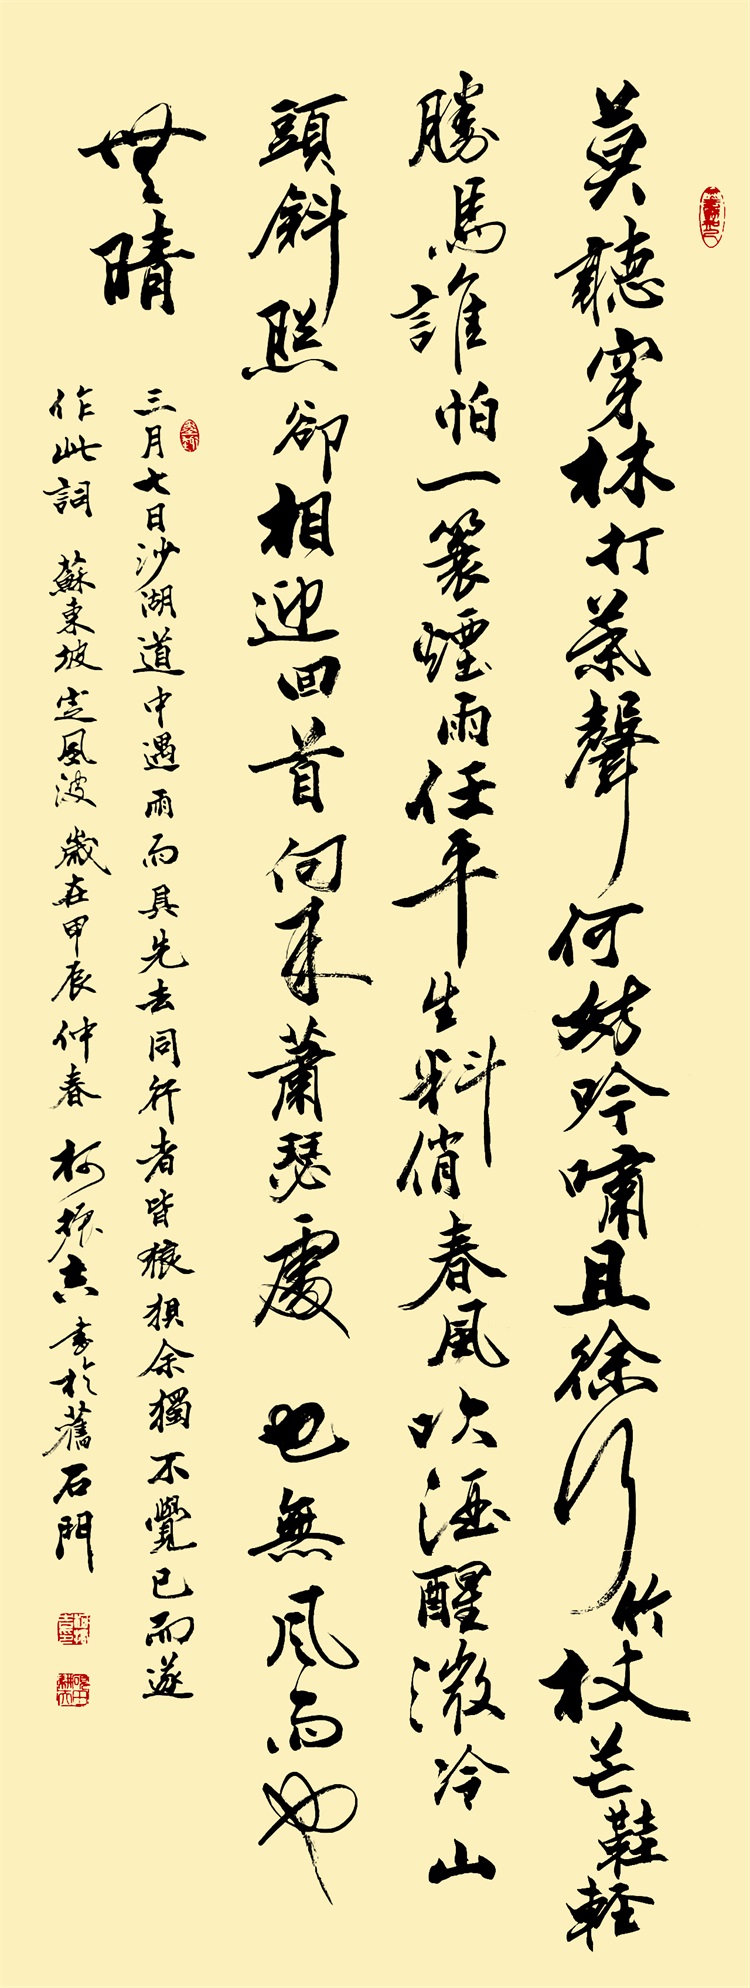 莫聽穿林打葉聲何妨吟嘯且徐行竹杖芒鞋軽
勝馬誰怕一簑煙雨任平生料俏春風吹酒醒微冷山
頭斜照卻相迎回首向來蕭瑟處 也無風雨也
無晴
三月七日沙湖道中遇雨而具先去同行者皆狼狽余獨不覺已而遂
作此詞 蘇東坡定風波 歲在甲辰仲春 柯振吉書於舊石門